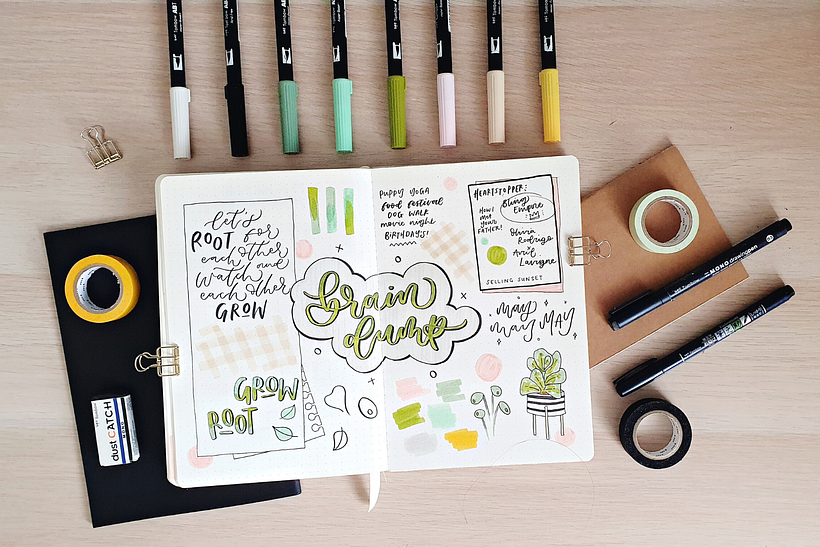 let's
ROOT for
each other
and
watch
each other
GROW
GROW
ROOT
brain
dump
PUPPY YOGA
food festival
DOG WALK
movie night
BIRTHDAYS!
HEARTSTOPPER!
Bling
Empire
HOW I
MET
YOUR
FATHER!
Olivia
Rodrigo
x
Avril
Lavigne
SELLING SUNSET
may
may MAY
dustCATCH
MONO
MONO drawing pen